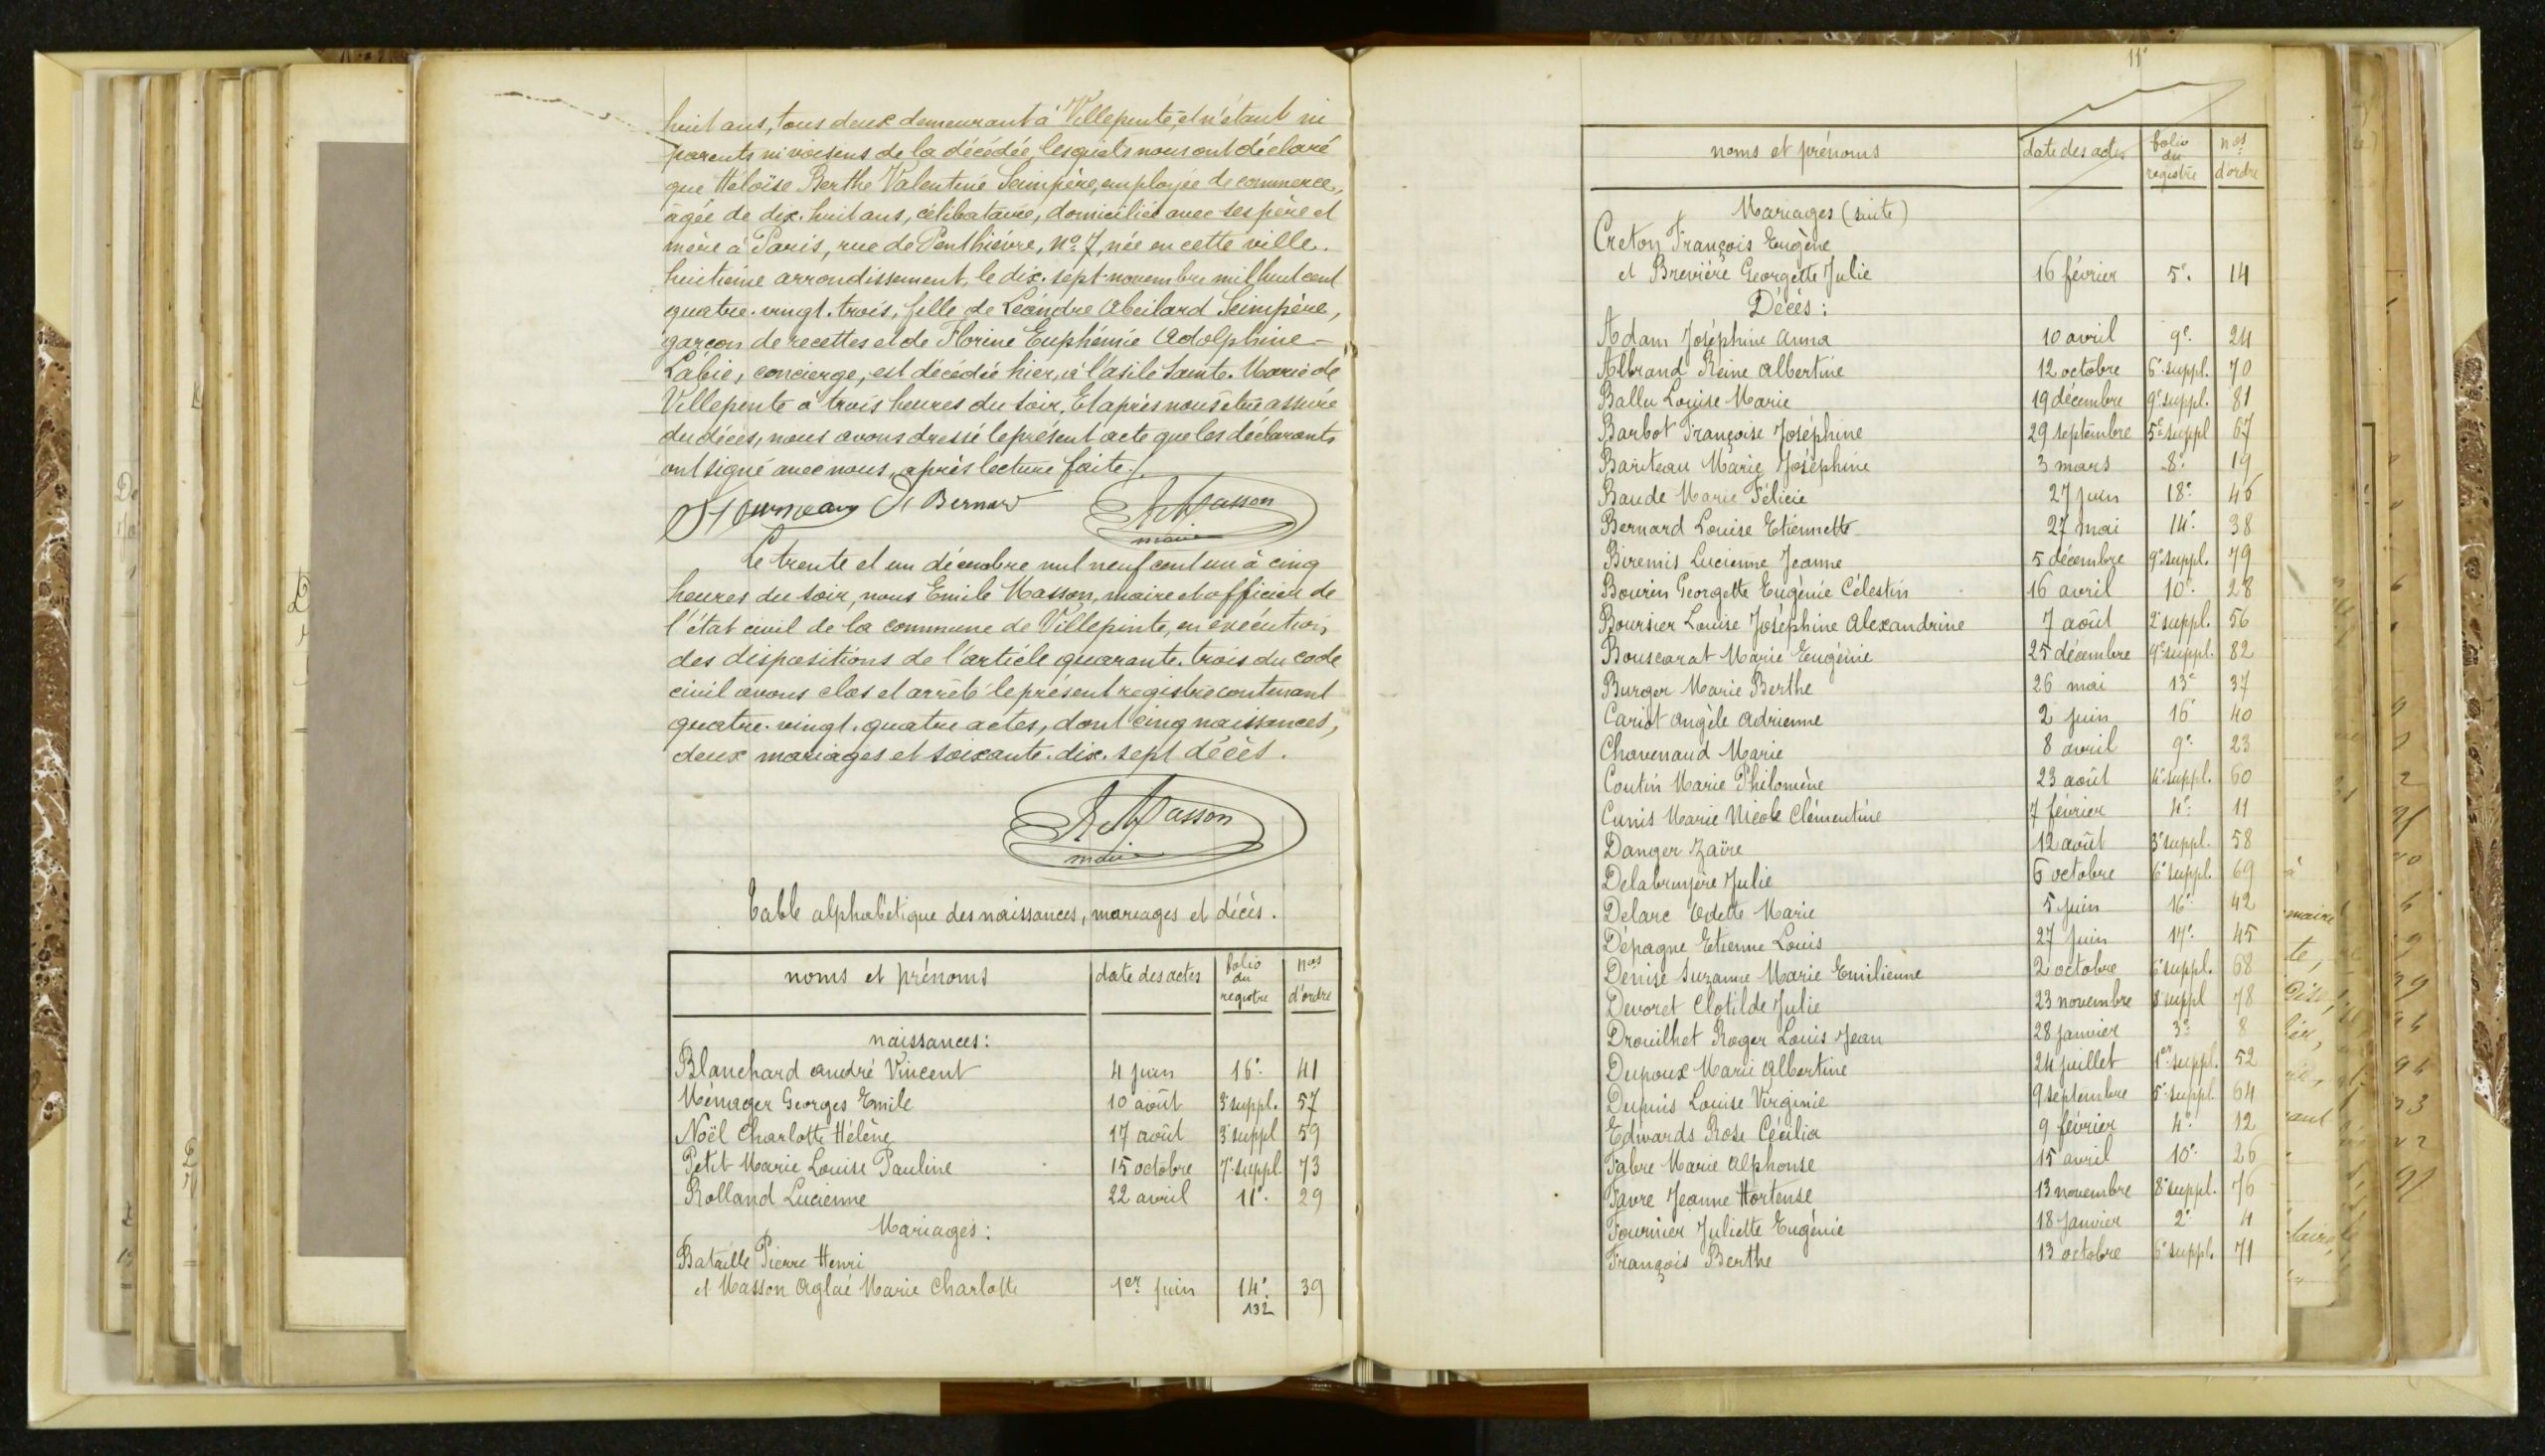 huit ans, tous deux demeurant à Villepinte, et n'étant ni
parents ni voisins de la décédée, lesquels nous ont déclaré
que Héloïse Berthe Valentine Seimpère, employée de commerce,
âgée de dix-huit ans, célibataire, domiciliée avec ses père et
mère à Paris, rue de Penthièvre, No 7, née en cette ville.
huitième arrondissement, le dix-sept novembre mil huit cent
quatre-vingt-trois, fille de Léandre Abeilard Seimpère,
garçon de recettes et de Florine Euphémie Adolphine-
Labie, concierge, est décédée hier, à l'asile Sainte-Marie de
Villepinte à trois heures du soir. Et après nous être assuré
du décès, nous avons dressé le présent acte que les déclarants
ont signé avec nous, après lecture faite./.
Bernard Masson
maire
Le trente et un décembre mil neuf cent un à cinq
heures du soir, nous Emile Masson, maire et officier de
l'état civil de la commune de Villepinte, en exécution
des dispositions de l'article quarante-trois du code
civil avons clos et arrêté le présent registre contenant
quatre-vingt-quatre actes, dont cinq naissances,
deux mariages et soixante-dix-sept décès.
Masson
maire
Table alphabétique des naissances, mariages et décès.
noms et prénoms date des actes folio du registre nos d'ordre
naissances:
Blanchard André Vincent 4 juin 16e 41
Ménager Georges Emile 10 août 3e suppl. 57
Noël Charlotte Hélène 17 août 3e suppl 59
Petit Marie Louise Pauline 15 octobre 7e suppl. 73
Rolland Lucienne 22 avril 11e. 29
Mariages:
Bataille Pierre Henri
et Masson Aglaé Marie Charlotte 1er juin 14e. 39
132
11e
noms et prénoms date des actes folio du registre nos d'ordre
Mariages (suite)
Creton François Eugène
et Brevière Georgette Julie 16 février 5e. 14
Décès:
Adam Joséphine Anna 10 avril 9e. 24
Albrand Reine Albertine 12 octobre 6e suppl. 70
Ballu Louise Marie 19 décembre 9e suppl. 81
Barbot Françoise Joséphine 29 septembre 5e suppl 67
Bariteau Marie Joséphine 3 mars 8e. 19
Baude Marie Félicie 27 juin 18e 46
Bernard Louise Etiennette 27 mai 14e. 38
Biremis Lucienne Jeanne 5 décembre 9e suppl. 79
Bourin Georgette Eugénie Célestin 16 avril 10e. 28
Boursier Louise Joséphine Alexandrine 7 août 2e suppl. 56
Bouscarat Marie Eugénie 25 décembre 9e suppl. 82
Burger Marie Berthe 26 mai 13e 37
Cariot Angèle Adrienne 2 juin 16e 40
Chavenaud Marie 8 avril 9e. 23
Coutin Marie Philomène 23 août 4e suppl. 60
Cunis Marie Nicole Clémentine 7 février 4e. 11
Danger Zaïre 12 août 3e suppl. 58
Delabruyère Julie 6 octobre 6e suppl. 69
Delarc Odette Marie 5 juin 16e. 42
Dépagne Etienne Louis 27 juin 17e. 45
Denise Suzanne Marie Emilienne 2 octobre 6e suppl. 68
Devoret Clotilde Julie 23 novembre 8e suppl 78
Drouilhet Roger Louis Jean 28 janvier 3e 8
Dupoux Marie Albertine 24 juillet 1er suppl. 52
Dupuis Louise Virginie 9 septembre 5e suppl 64
Edwards Rose Cécilia 9 février 4e. 12
Fabre Marie Alphonse 15 avril 10e. 26
Favre Jeanne Hortense 13 novembre 8e suppl. 76
Fournier Juliette Eugénie 18 janvier 2e 4
François Berthe 13 octobre 6e suppl. 71